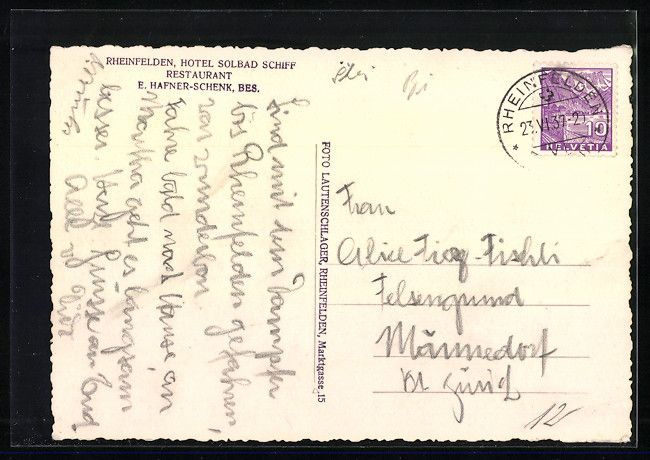 RHEINFELDEN, HOTEL SOLBAD SCHIFF
RESTAURANT
E. HAFNER-SCHENK, BES.
Sind mit dem Dampfer
bis Rheinfelden gefahren,
war wunderbar
fahre bald nach Hause, an
Martha geht es langsam
besser. Herzl. Grüsse an Eud
FOTO LAUTENSCHLAGER, RHEINFELDEN, Marktgasse 15
RHEINFELDEN
23.VI.37-21
10
HELVETIA
Frau
Alice -Fischli
Felsengrund
Männedorf
Kt. Zürich
12